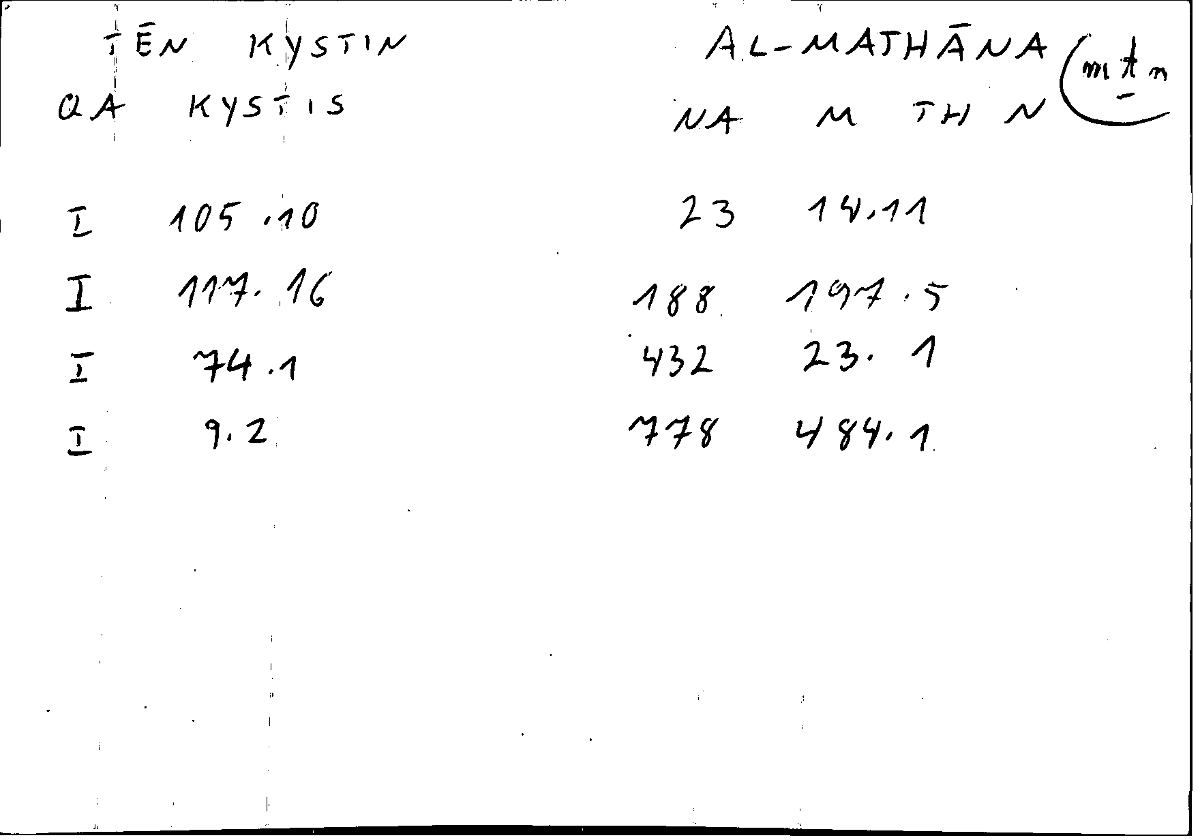 TĒN KYSTIN AL-MATHĀNA (mṯn
QA KYSTIS NA M TH N
I 105.10 23 14.11
I 117.16 188 197.5
I 74.1 432 23.1
I 9.2 778 484.1